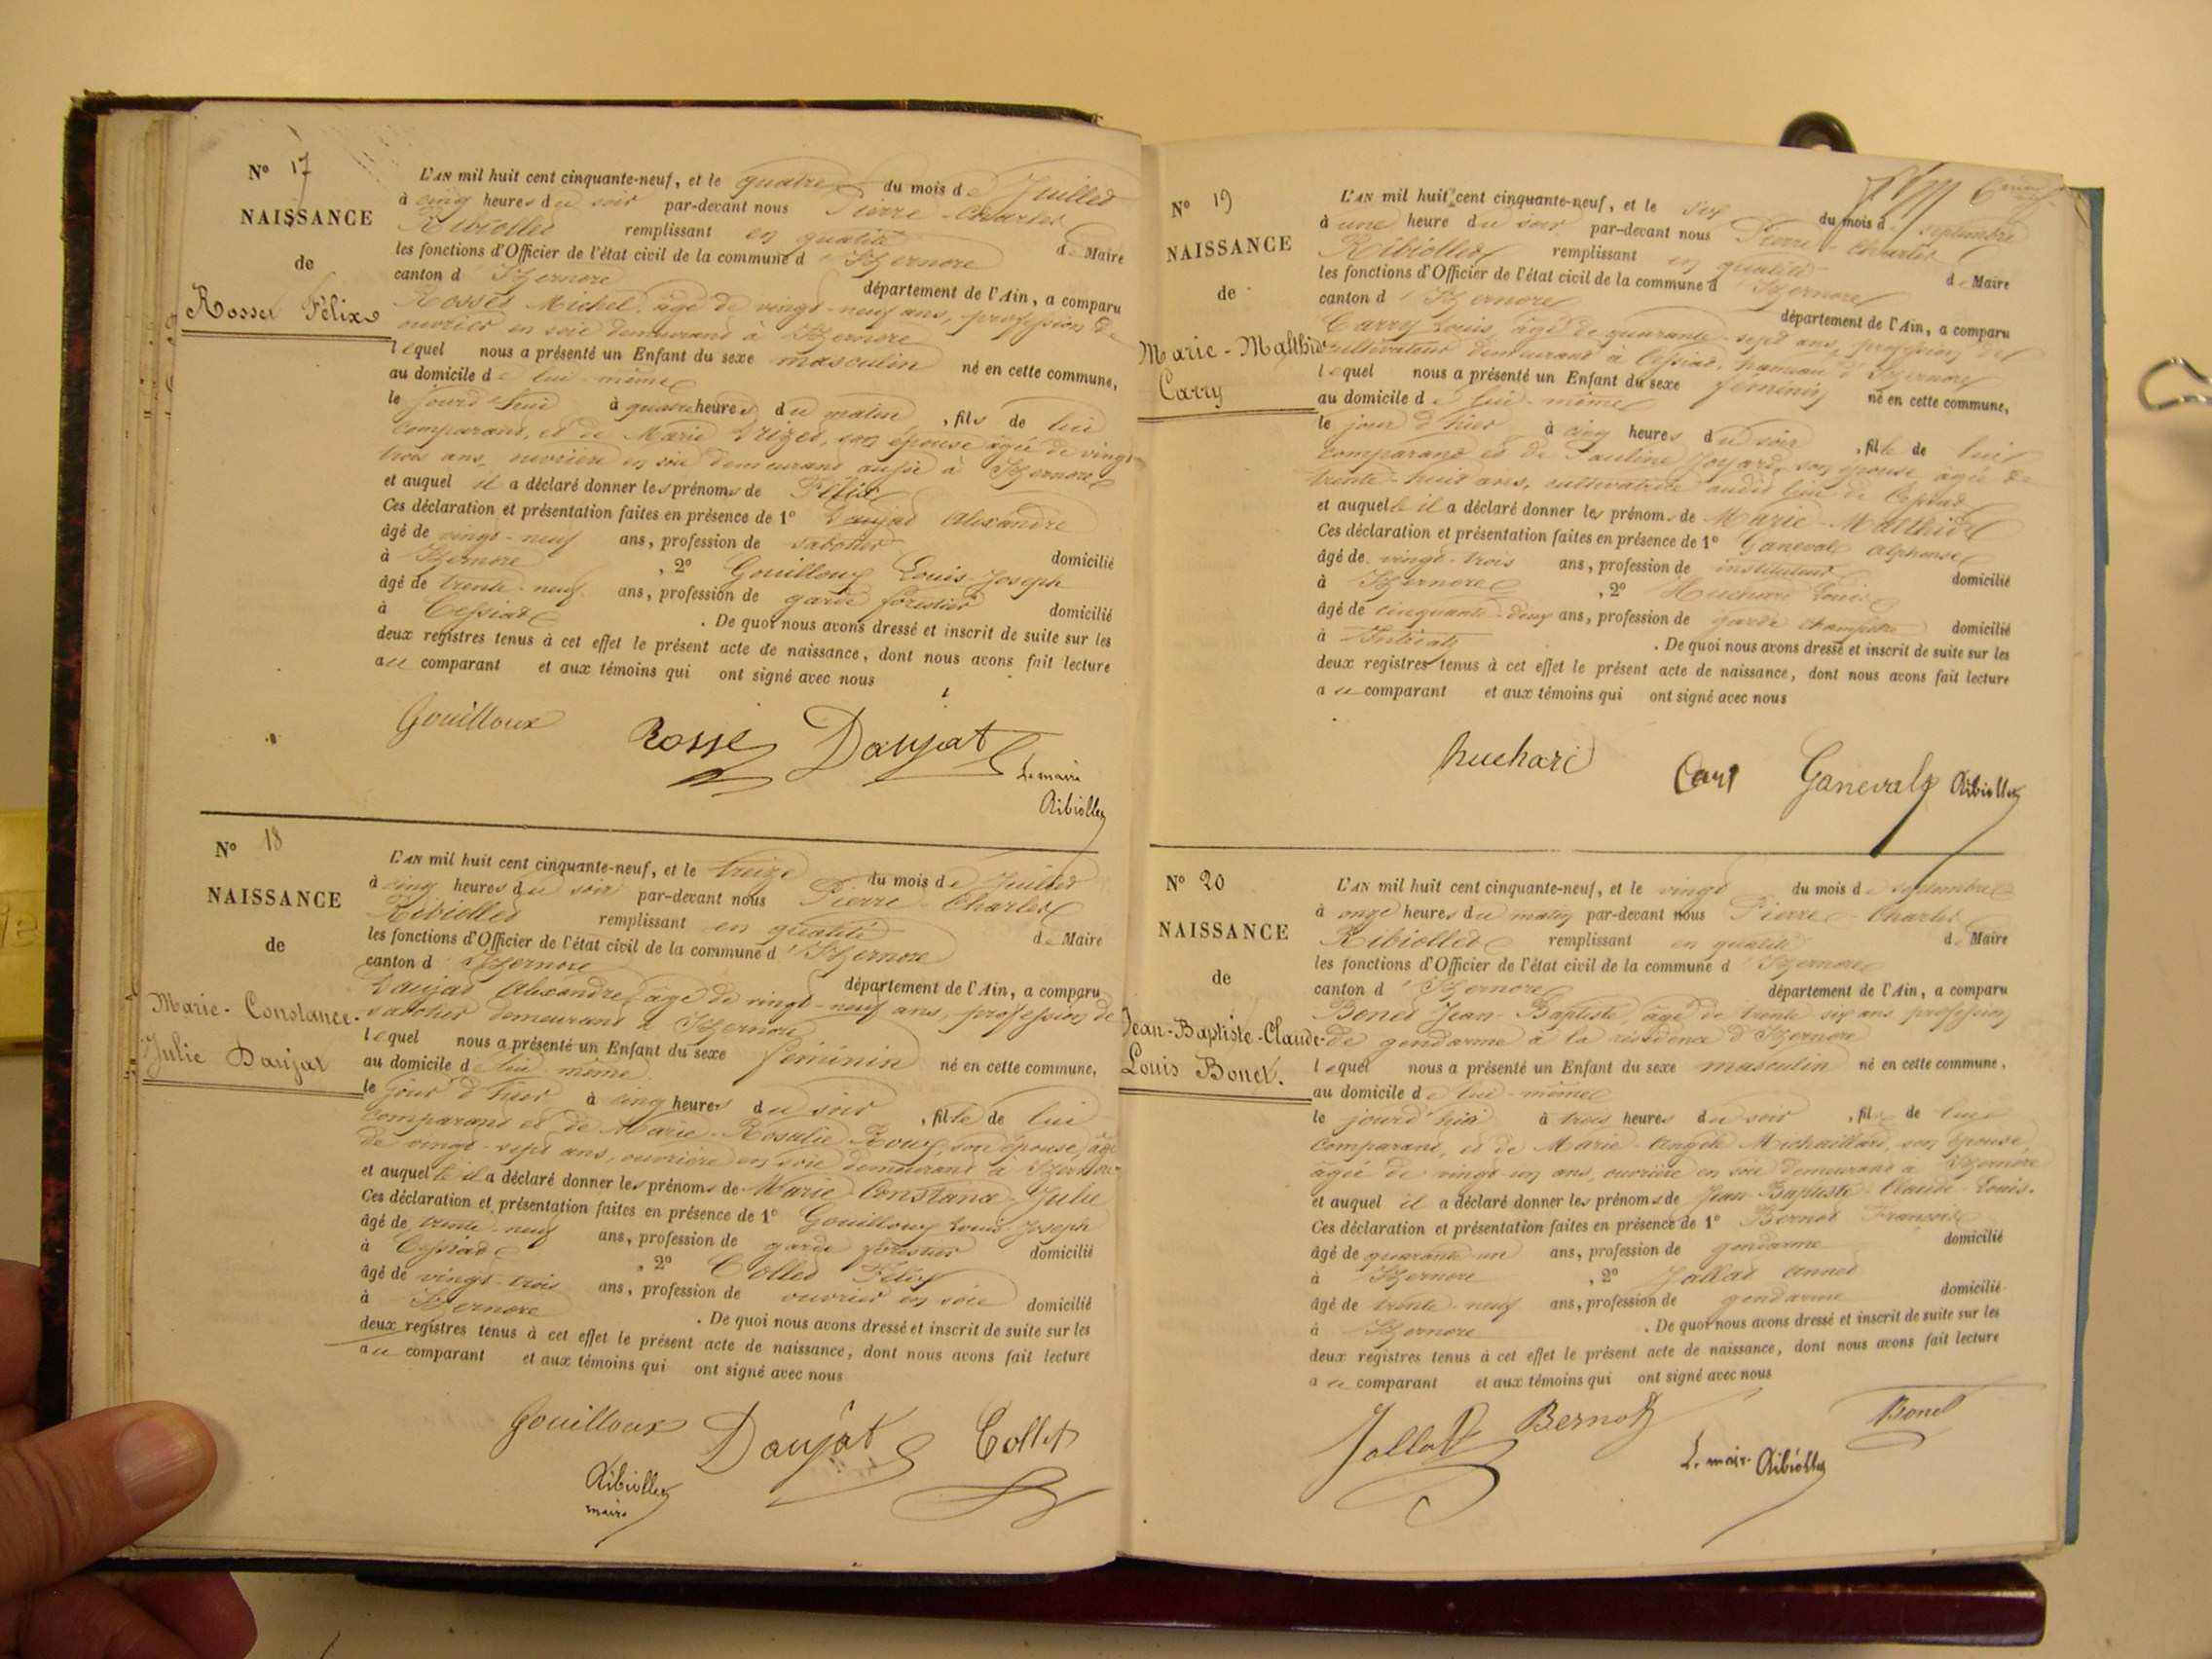 N° 17
NAISSANCE
de
Rosset Félix
L'AN mil huit cent cinquante-neuf, et le quatre du mois de Juillet
à cinq heures du soir par-devant nous Pierre-Charles
Ribiollet remplissant en qualité de Maire
les fonctions d'Officier de l'état civil de la commune d'Izernore
canton d'Izernore département de l'Ain, a comparu
Rosset Michel, âgé de vingt-neuf ans, profession de
ouvrier en soie demeurant à Izernore
lequel nous a présenté un Enfant du sexe masculin né en cette commune,
au domicile de lui-même
le jourd'hui à quatre heures du matin, fils de lui
comparant, et de Marie son épouse âgée de vingt-
trois ans, ouvrière en soie demeurant aussi à Izernore
et auquel il a déclaré donner les prénoms de Félix
Ces déclaration et présentation faites en présence de 1° Daujat Alexandre
âgé de vingt-neuf ans, profession de sabotier domicilié
à Izernore, 2° Gouilloux Louis-Joseph
âgé de trente-neuf ans, profession de garde forestier domicilié
à Cessiat. De quoi nous avons dressé et inscrit de suite sur les
deux registres tenus à cet effet le présent acte de naissance, dont nous avons fait lecture
au comparant et aux témoins qui ont signé avec nous
Gouilloux Rosset Daujat
Le maire
Ribiollet
N° 18
NAISSANCE
de
Marie-Constance-
Julie Daujat
L'AN mil huit cent cinquante-neuf, et le treize du mois de Juillet
à cinq heures du soir par-devant nous Pierre-Charles
Ribiollet remplissant en qualité de Maire
les fonctions d'Officier de l'état civil de la commune d'Izernore
canton d'Izernore département de l'Ain, a comparu
Daujat Alexandre, âgé de vingt-neuf ans, profession de
sabotier demeurant à Izernore
lequel nous a présenté un Enfant du sexe féminin né en cette commune,
au domicile de lui même
le jour d'hier à cinq heures du soir, fille de lui
comparant et de Marie-Rosalie Roux, son épouse, âgée
de vingt-sept ans, ouvrière en soie demeurant à Izernore
et auquelle il a déclaré donner les prénoms de Marie-Constance-Julie
Ces déclaration et présentation faites en présence de 1° Gouilloux Louis-Joseph
âgé de trente-neuf ans, profession de garde forestier domicilié
à Cessiat, 2° Collet Félix
âgé de vingt-trois ans, profession de ouvrier en soie domicilié
à Izernore. De quoi nous avons dressé et inscrit de suite sur les
deux registres tenus à cet effet le présent acte de naissance, dont nous avons fait lecture
au comparant et aux témoins qui ont signé avec nous
Gouilloux Daujat Collet
Ribiollet
maire
N° 19
NAISSANCE
de
Marie-Malthide
Carry
L'AN mil huit cent cinquante-neuf, et le six du mois de septembre
à une heure du soir par-devant nous Pierre-Charles
Ribiollet remplissant en qualité de Maire
les fonctions d'Officier de l'état civil de la commune d'Izernore
canton d'Izernore département de l'Ain, a comparu
Carry Louis, âgé de quarante-sept ans, profession de
cultivateur demeurant à Cessiat, hameau d'Izernore
lequel nous a présenté un Enfant du sexe féminin né en cette commune,
au domicile de lui-même
le jour d'hier à cinq heures du soir, fille de lui
comparant et de Pauline Joyard, son épouse âgée de
trente-huit ans, cultivatrice audit lieu de Cessiat
et auquelle il a déclaré donner les prénoms de Marie-Malthide
Ces déclaration et présentation faites en présence de 1° Ganeval Alphonse
âgé de vingt-trois ans, profession de instituteur domicilié
à Izernore, 2° Huchard Louis
âgé de cinquante-deux ans, profession de garde champêtre domicilié
à. De quoi nous avons dressé et inscrit de suite sur les
deux registres tenus à cet effet le présent acte de naissance, dont nous avons fait lecture
au comparant et aux témoins qui ont signé avec nous
huchard Ganeval Ribiollet
N° 20
NAISSANCE
de
Jean-Baptiste-Claude-
Louis Bonet.
L'AN mil huit cent cinquante-neuf, et le vingt du mois de septembre
à onze heures du matin par-devant nous Pierre-Charles
Ribiollet remplissant en qualité de Maire
les fonctions d'Officier de l'état civil de la commune d'Izernore
canton d'Izernore département de l'Ain, a comparu
Bonet Jean-Baptiste, âgé de trente six ans profession
de gendarme à la résidence d'Izernore
lequel nous a présenté un Enfant du sexe masculin né en cette commune,
au domicile de lui-même
le jourd'hier à trois heures du soir, fils de lui
comparant, et de Marie-Angèle Michaillard, son épouse
âgée de vingt-un ans, ouvrière en soie demeurant à Izernore
et auquel il a déclaré donner les prénoms de Jean-Baptiste-Claude-Louis.
Ces déclaration et présentation faites en présence de 1° Bernot François
âgé de quarante-un ans, profession de gendarme domicilié
à Izernore, 2° Jallat Annet
âgé de trente-neuf ans, profession de gendarme domicilié
à Izernore. De quoi nous avons dressé et inscrit de suite sur les
deux registres tenus à cet effet le présent acte de naissance, dont nous avons fait lecture
au comparant et aux témoins qui ont signé avec nous
Jallat Bernot Bonet
Le maire Ribiollet